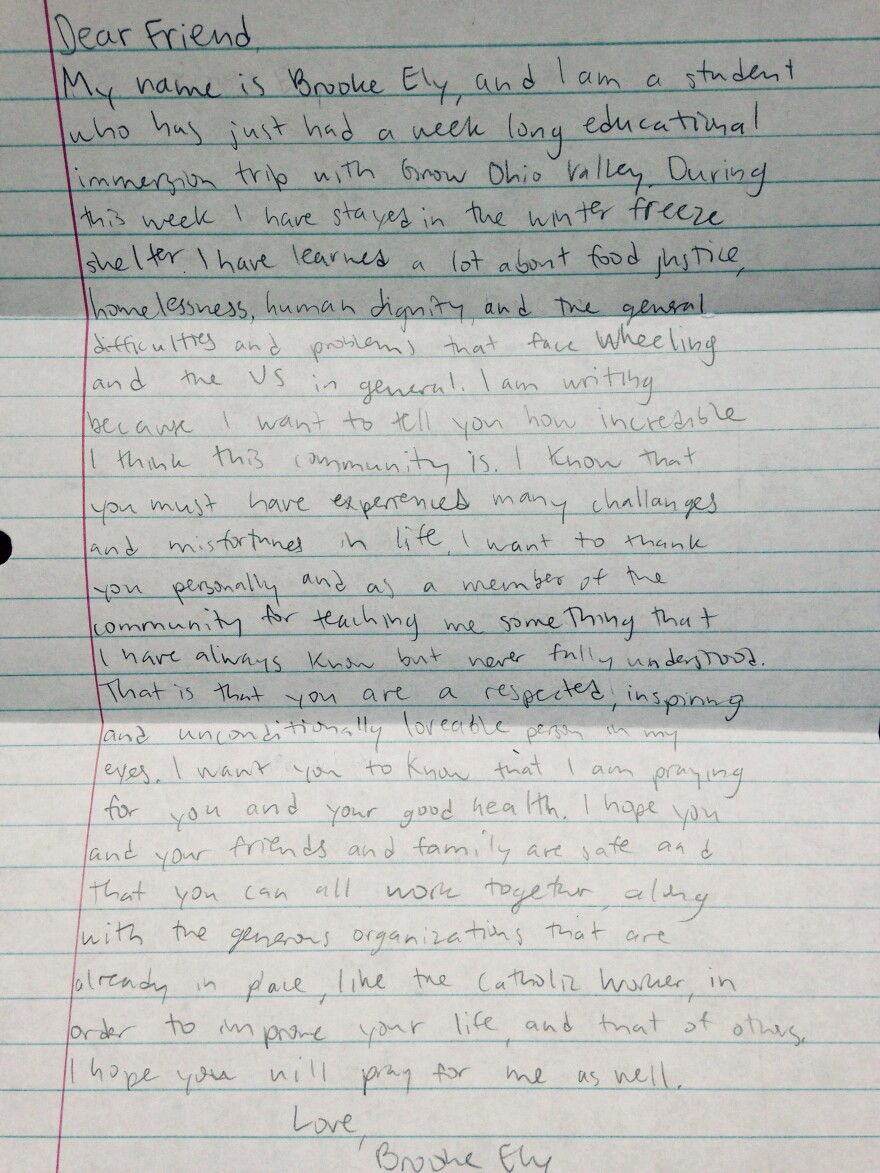 Dear Friend,
My name is Brooke Ely, and I am a student
who has just had a week long educational
immerzion trip with Grow Ohio Valley. During
this week I have stayed in the winter freeze
shelter. I have learned a lot about food justice,
homelessness, human dignity, and the general
difficulties and problems that face Wheeling
and the US in general. I am writing
because I want to tell you how incredible
I think this community is. I know that
you must have experienced many challanges
and misfortunes in life. I want to thank
you personally and as a member of the
community for teaching me something that
I have always know but never fully understood.
That is that you are a respected, inspiring
and unconditionally loveable person in my
eyes. I want you to know that I am praying
for you and your good health. I hope you
and your friends and family are safe and
that you can all work together, along
with the generous organizations that are
already in place, like the Catholic Worker, in
order to improve your life, and that of others.
I hope you will pray for me as well.
Love,
Brooke Ely